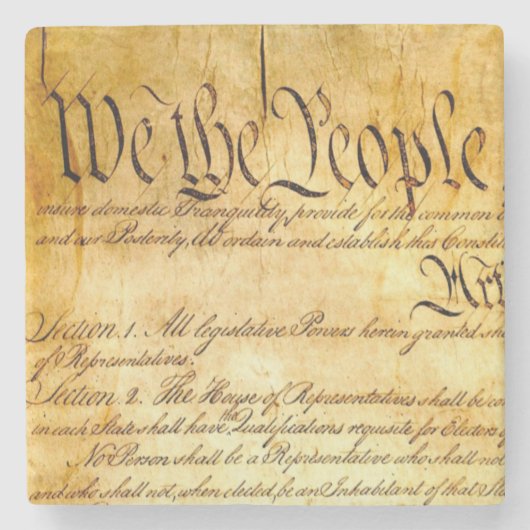 We the People
insure domestic Tranquility, provide for the common
and our Posterity, do ordain and establish this Constit
Art
Section. 1. All legislative Powers herein granted sh
of Representatives.
Section. 2. The House of Representatives shall be co
in each State shall have the Qualifications requisite for Electors o
No Person shall be a Representative who shall not
and who shall not, when elected, be an Inhabitant of that Sta